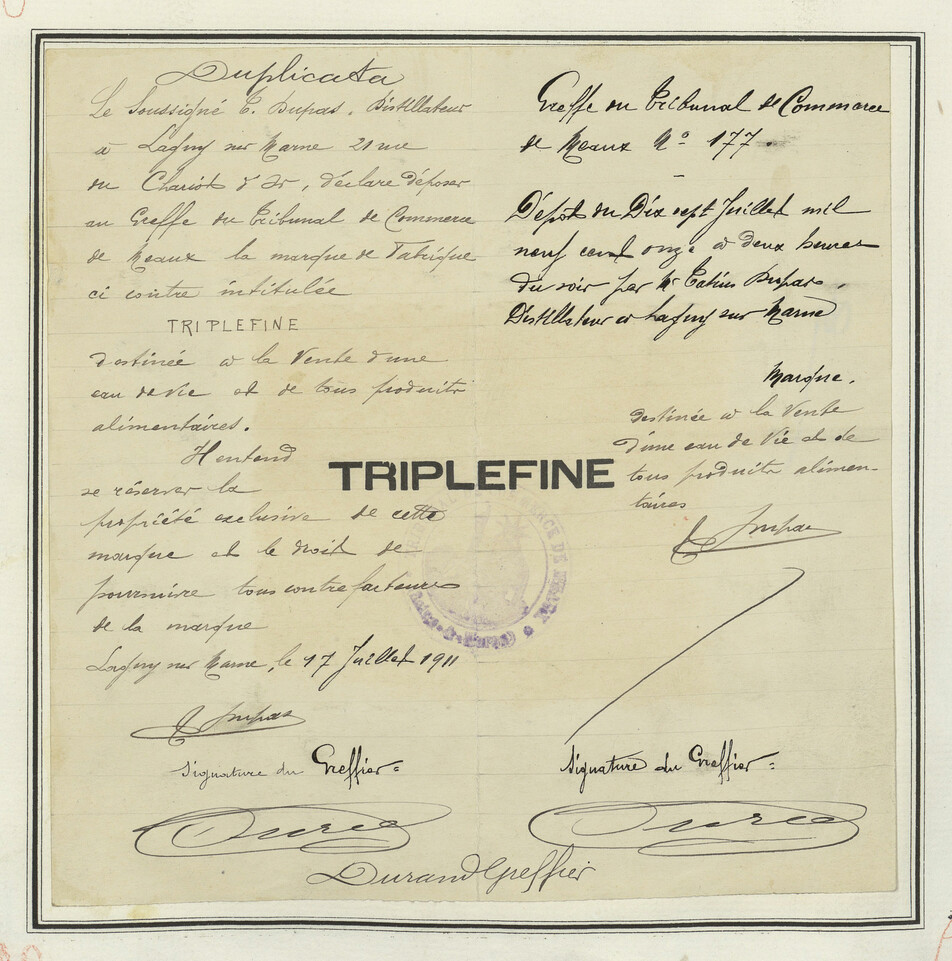 Duplicata
Le Soussigné E. Dupas, Distillateur
à Lagny sur Marne 21 rue
du Chariot d'Or, déclare déposer
au Greffe du Tribunal de Commerce
de Meaux la marque de Fabrique
ci contre intitulée
TRIPLEFINE
destinée à la Vente d'une
eau de vie et de tous produits
alimentaires.
Il entend
se réserver la
propriété exclusive de cette
marque et le droit de
poursuivre tous contrefacteurs
de la marque
Lagny sur Marne, le 17 Juillet 1911
E Dupas
Signature du Greffier =
Greffe du Tribunal de Commerce
de Meaux No 177
Dépôt du Dix sept Juillet mil
neuf cent onze à deux heures
du soir par Mr Dupas,
Distillateur à Lagny sur Marne
Marque.
TRIPLEFINE
destinée à la Vente
d'une eau de Vie et de
tous produits alimen-
taires
E Dupas
Signature du Greffier =
Durand Greffier